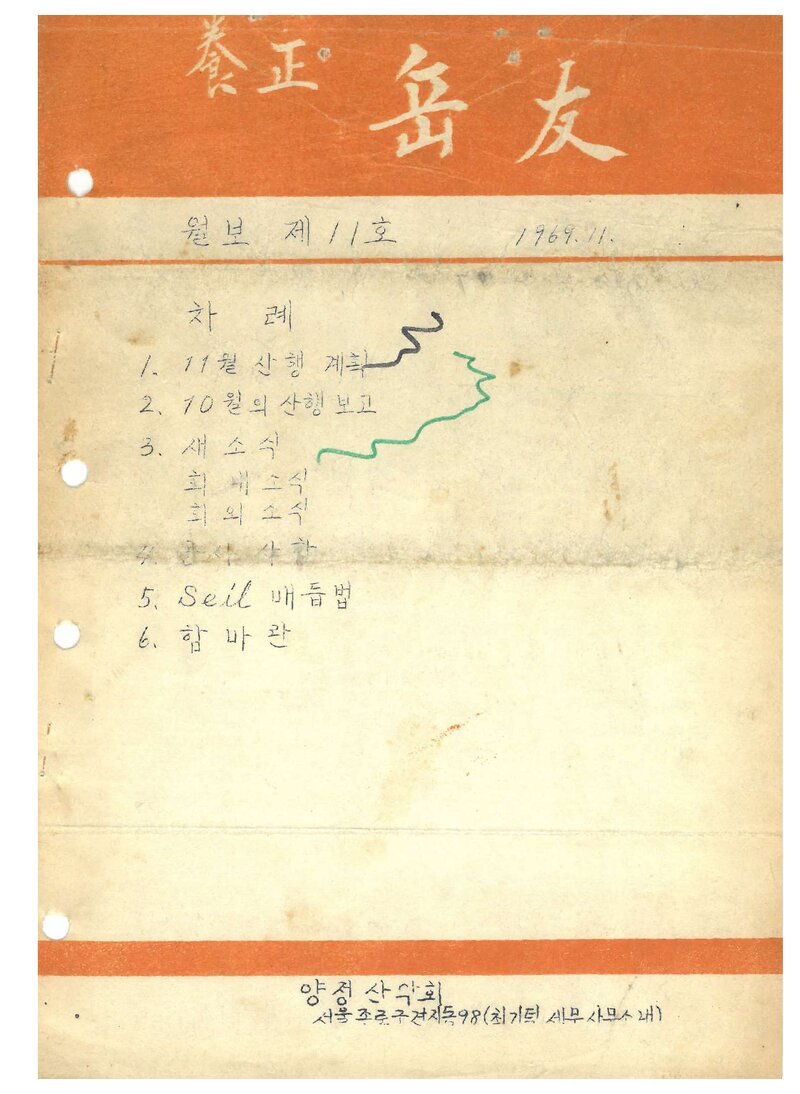 養正 岳友
월보 제11호 1969.11.
차 례
1. 11월 산행 계획
2. 10월의 산행 보고
3. 새소식
회내소식
회외소식
4. 사항
5. Seil 배듭법
6. 함바관
양정산악회
서울종로구견지동98(최기덕 세무사무소내)